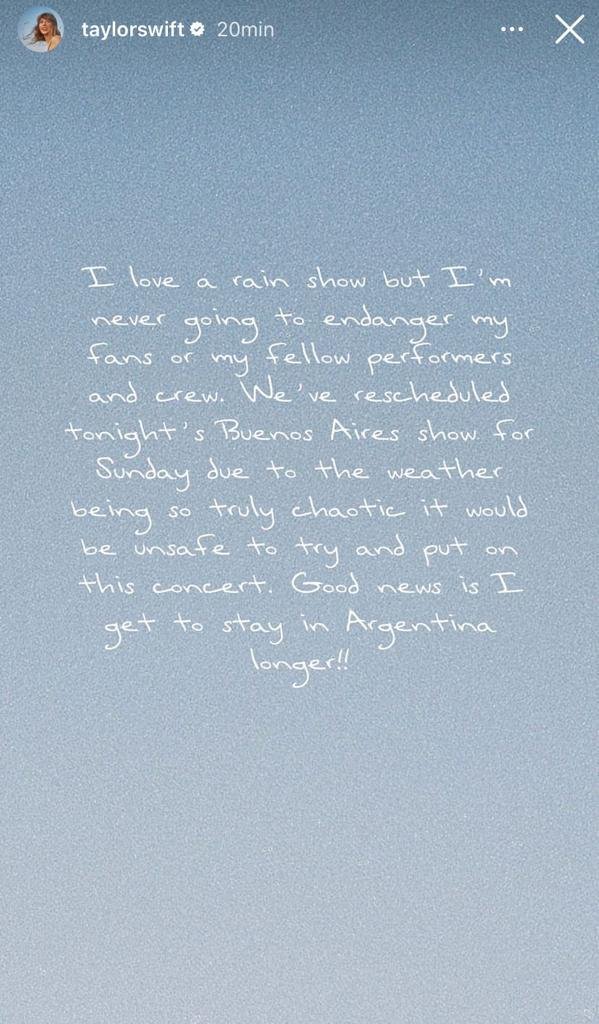 taylorswift 20min
I love a rain show but I'm
never going to endanger my
fans or my fellow performers
and crew. We've rescheduled
tonight's Buenos Aires show for
Sunday due to the weather
being so truly chaotic it would
be unsafe to try and put on
this concert. Good news is I
get to stay in Argentina
longer!!